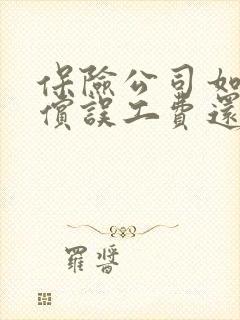 保險公司如
償誤工費還
羅晉